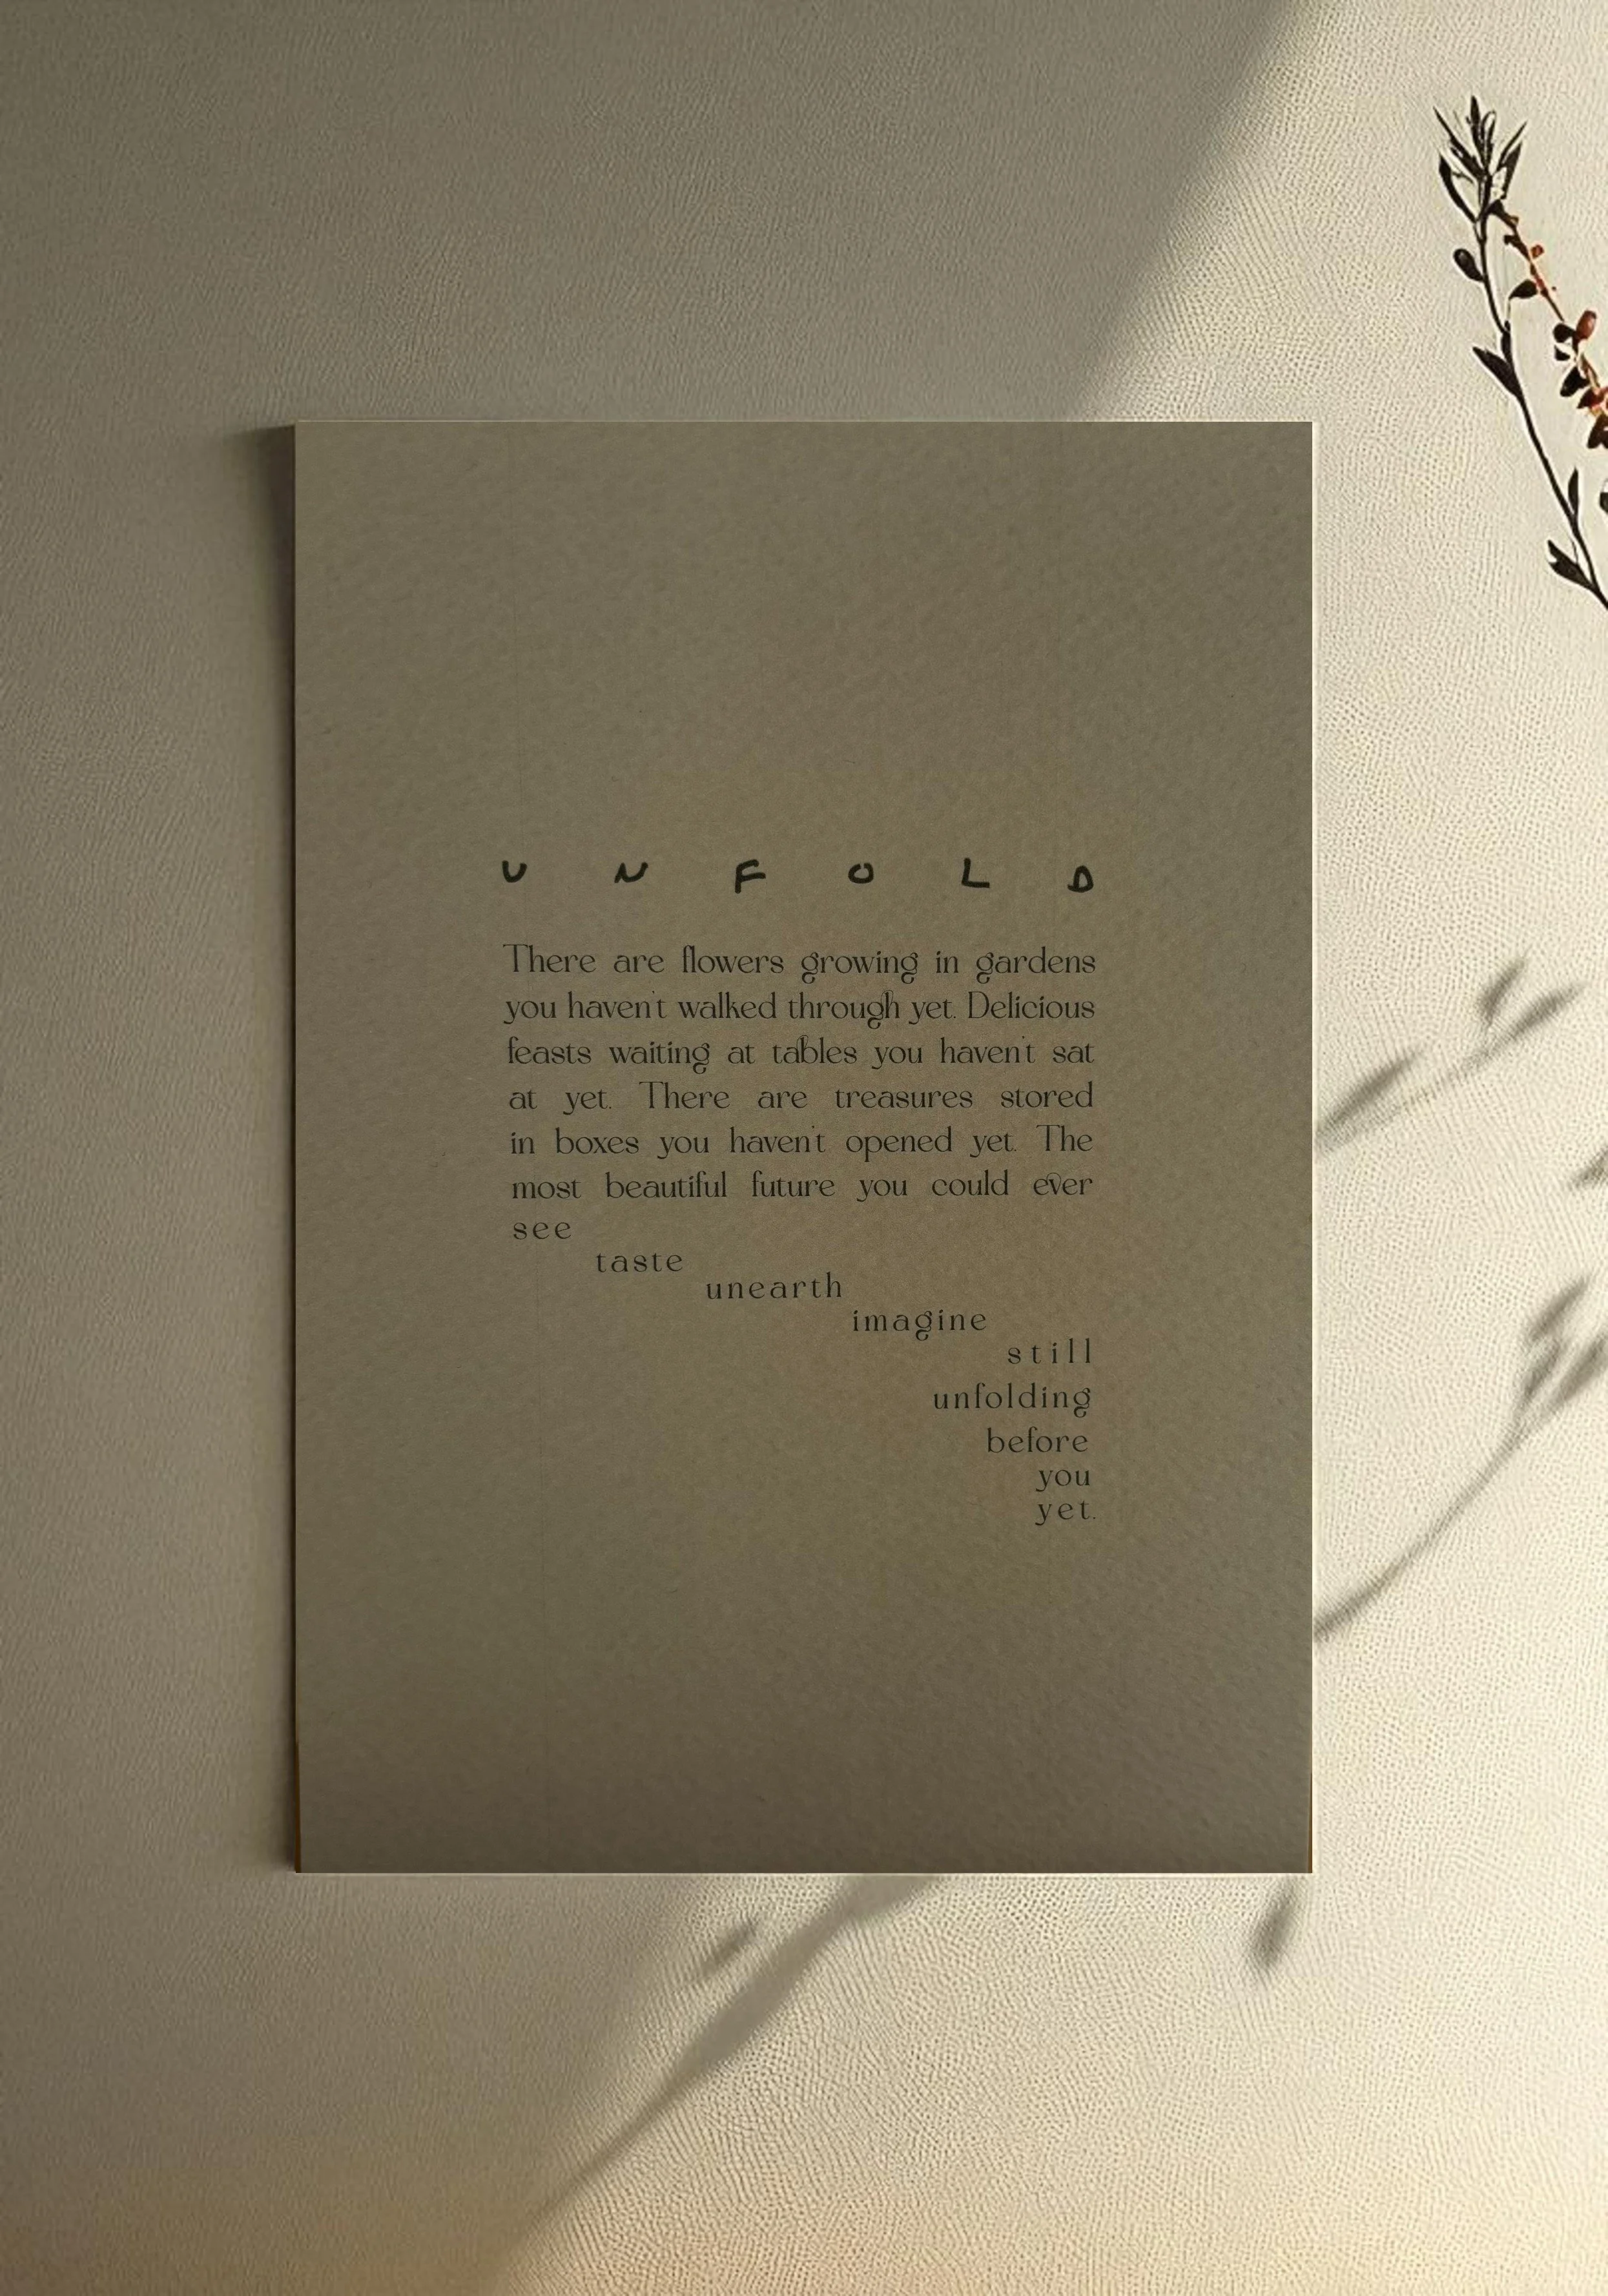 U N F O L D
There are flowers growing in gardens
you haven't walked through yet. Delicious
feasts waiting at tables you haven't sat
at yet. There are treasures stored
in boxes you haven't opened yet. The
most beautiful future you could ever
see
taste
unearth
imagine
still
unfolding
before
you
yet.